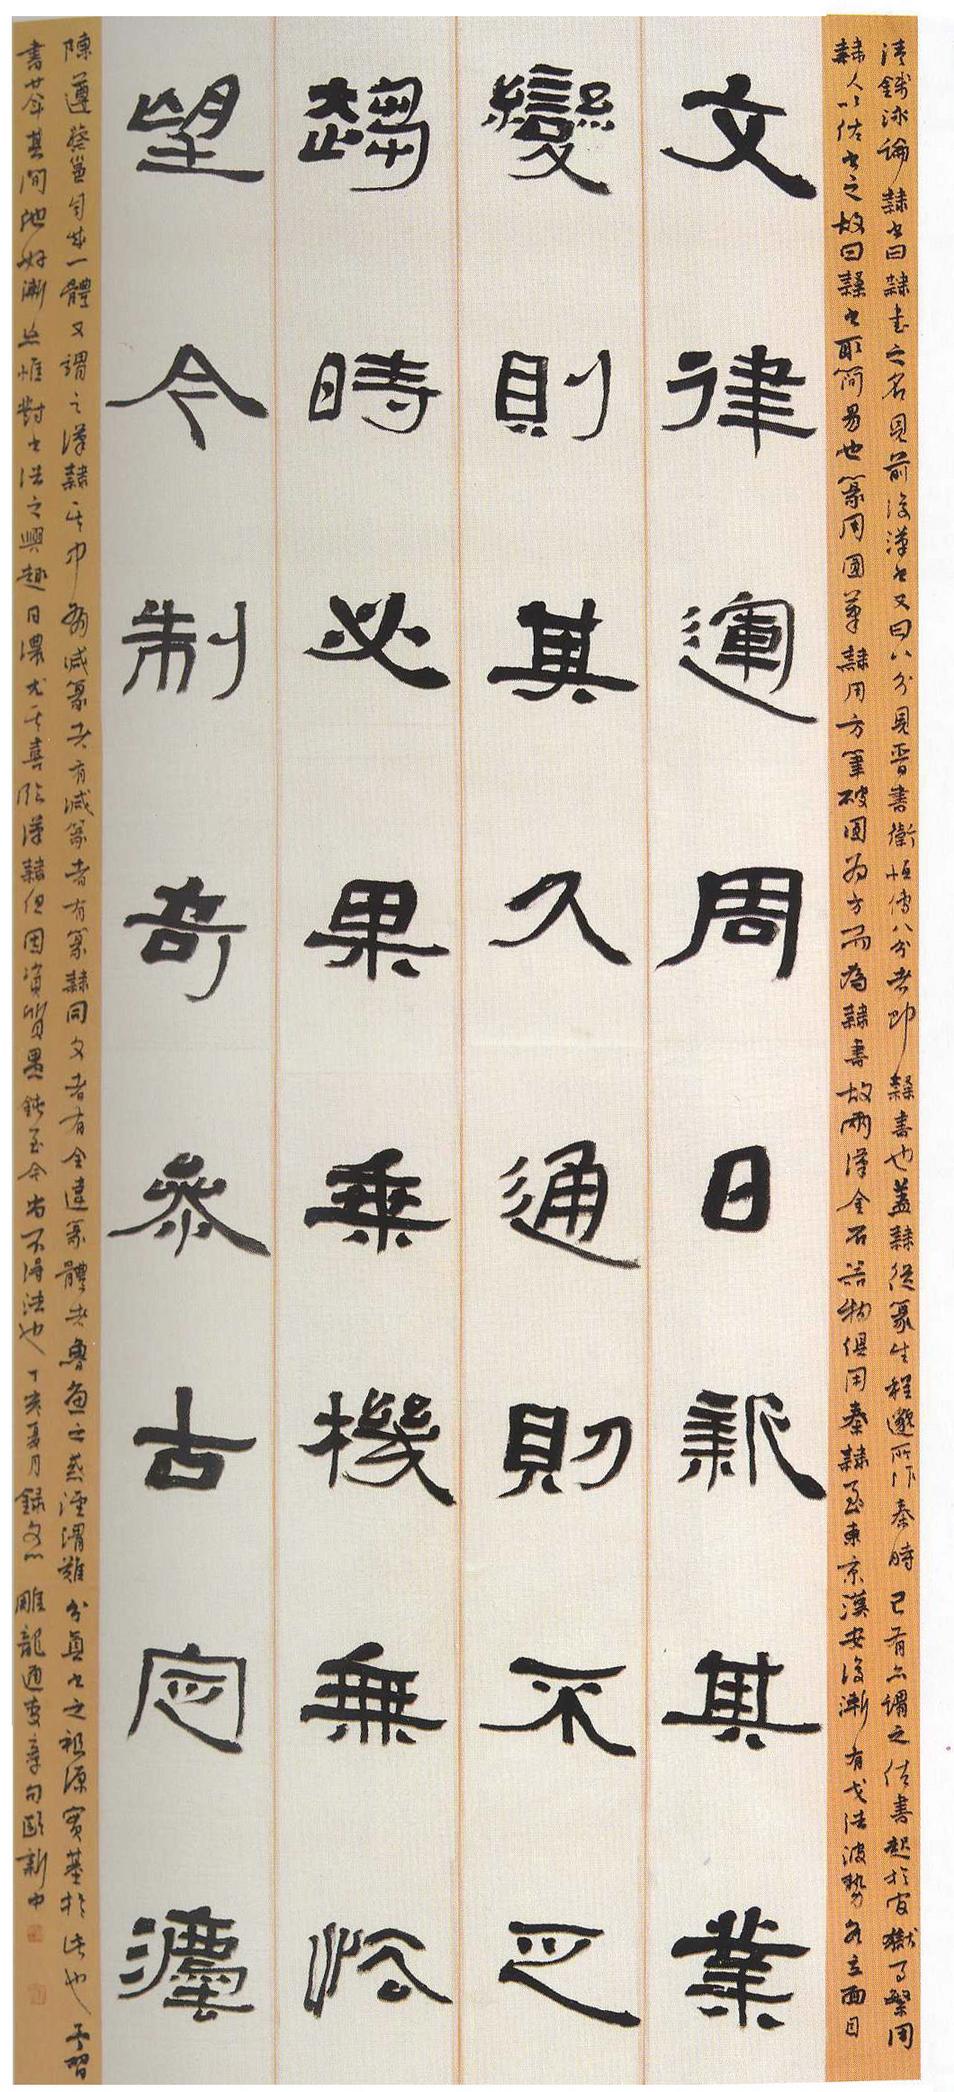 清錢泳論隸書曰隸書之名見前後漢書又曰八分見晉書衛恒傳八分者即隸書也蓋隸從篆生程邈所作秦時已有亦謂之佐書起於官獄事繁用
隸人以佐書之故曰隸書取簡易也篆用圓筆隸用方筆破圓為方而為隸書故兩漢金石器物俱用秦隸至東京漢安後漸有戈法波勢各立面目
文律運周日新其業
變則其久通則不乏
趨時必果乘機無怯
望今制奇參古定灋
陳遵蔡邕自成一體又謂之漢隸其中有減篆者有減篆者有篆隸同文者有全違篆體者魯魚之惑涇渭難分真書之祖源實基於此也予習
書其間他好漸惟對書法之興趣日濃尤其喜臨漢隸但因資質愚鈍至今尚不得法也丁亥夏月錄文心雕龍通變章句歐新中